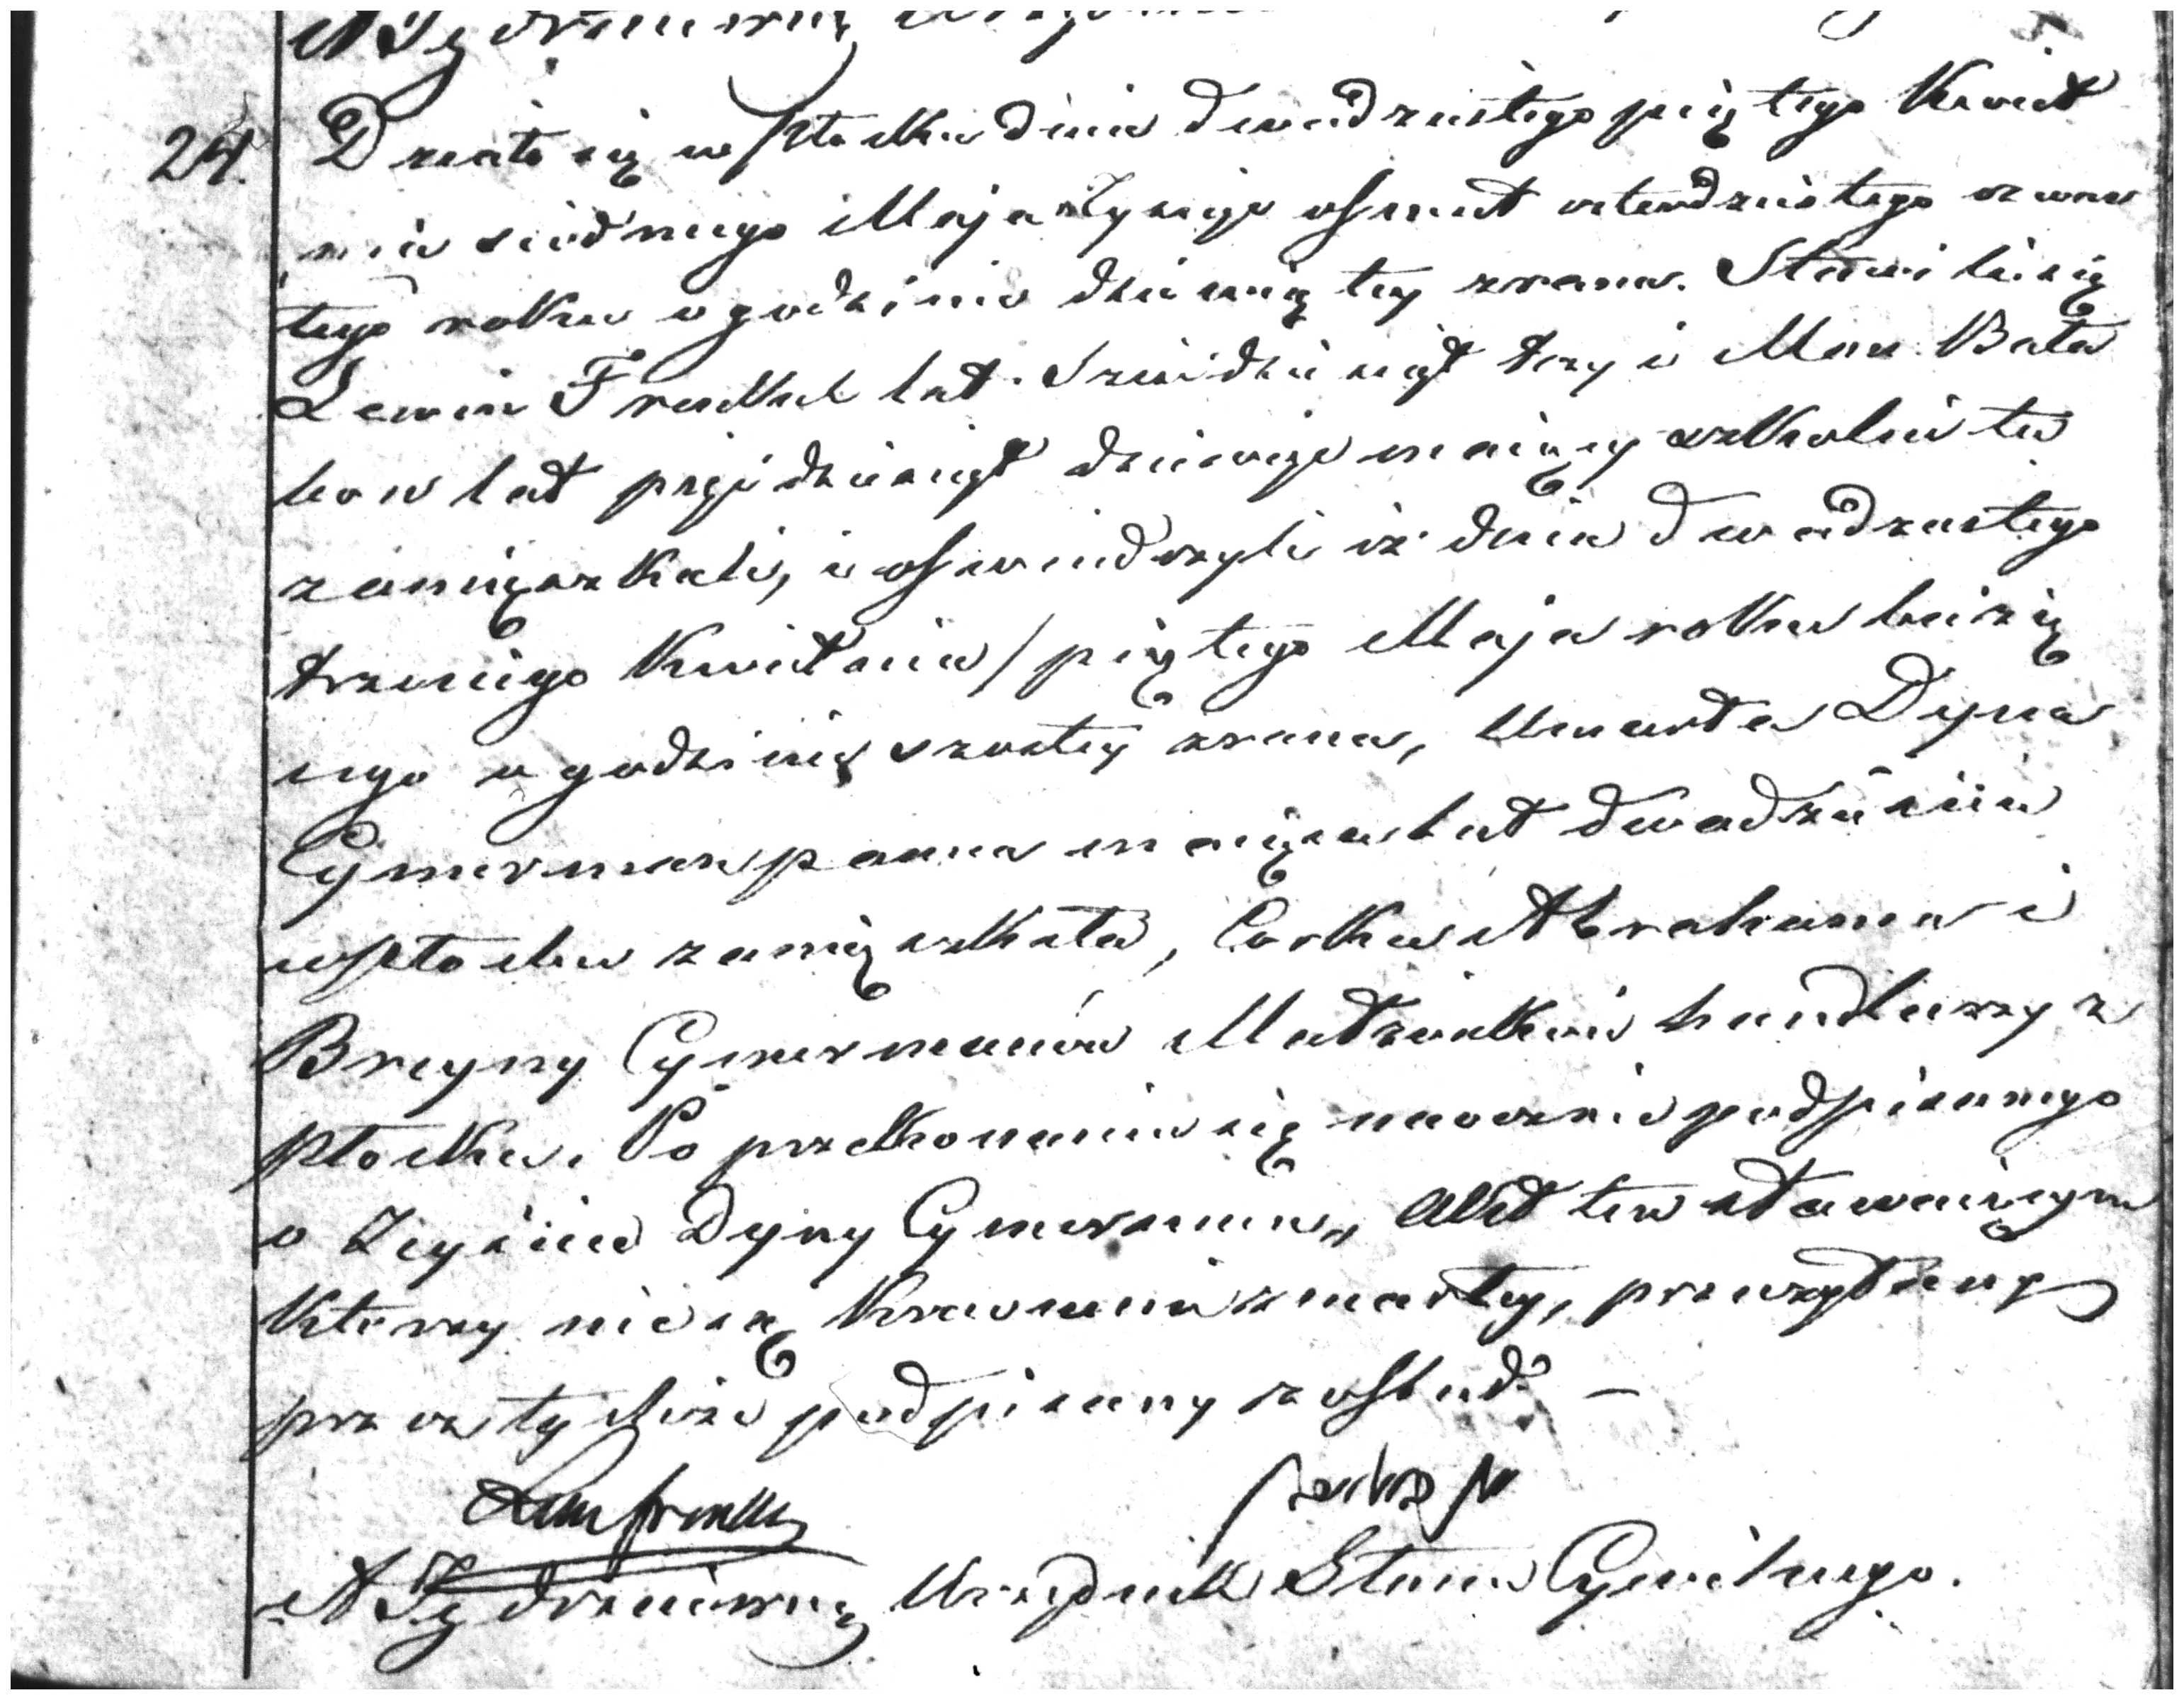 24.
Działo się w Płocku dnia dwudziestego piątego Kwiet
nia siódmego Maja tysiąc osmset czterdziestego czwar
tego roku o godzinie dziewiątey zrana. Stawili się
Lewin Frenkel lat sześćdziesiąt trzy i Bała
ban lat pięćdziesiąt dziewięć maiący szkolni tu
zamięszkali, i oswiadczyli iż dnia dwudziestego
trzeciego Kwietnia / piątego Maja roku bieżą
cego o godzinie szostey zrana, Umarła Dyna
Cymerman panna maiąca lat dwadzieścia
w Płocku zamięszkała, Corka Abrahama i
Breyny Cymermanów Małżonków handlarzy z
Płocka. Po przekonaniu się naocznie podpisanego
o Zeyściu Dyny Cymerman, Akt ten stawaiącym
którzy nie są Krewnemi zmarłey, przeczytany
przez tychże podpisany został. —
Lewin Frenkel
Urzędnik Stanu Cywilnego.